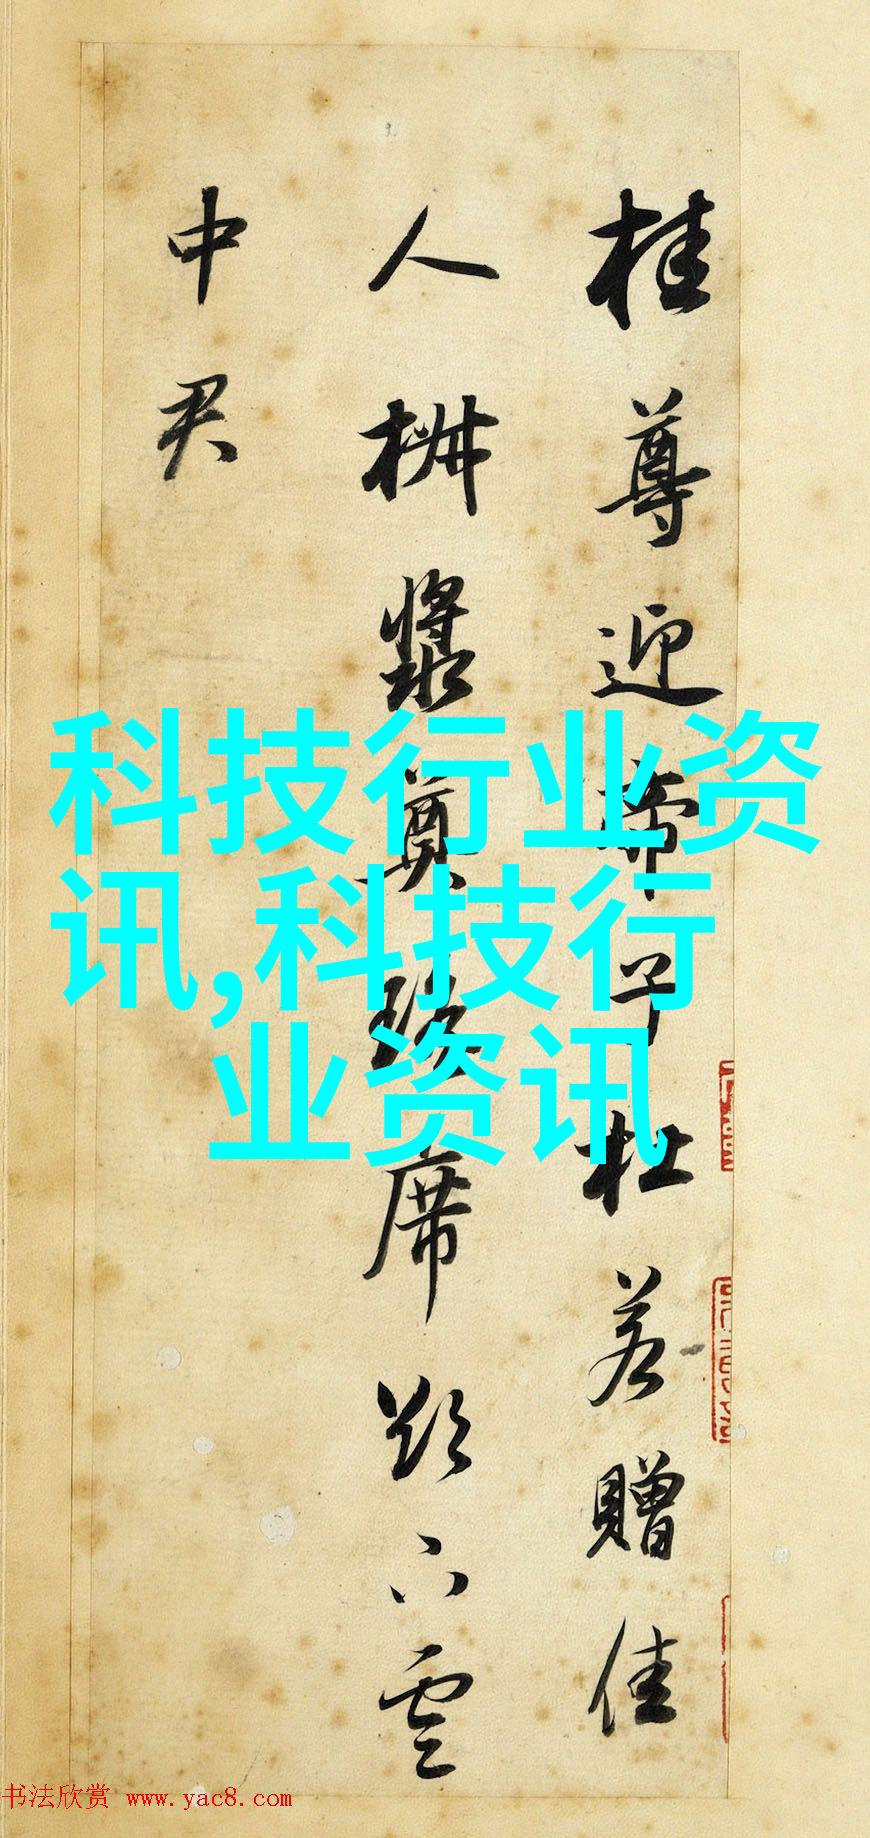 桂尊迎帝子杜若贈佳
人椒漿奠瑤席欲下雲
中君
科技行业资
讯,科技行
业资讯
书法欣赏 www.yac8.com